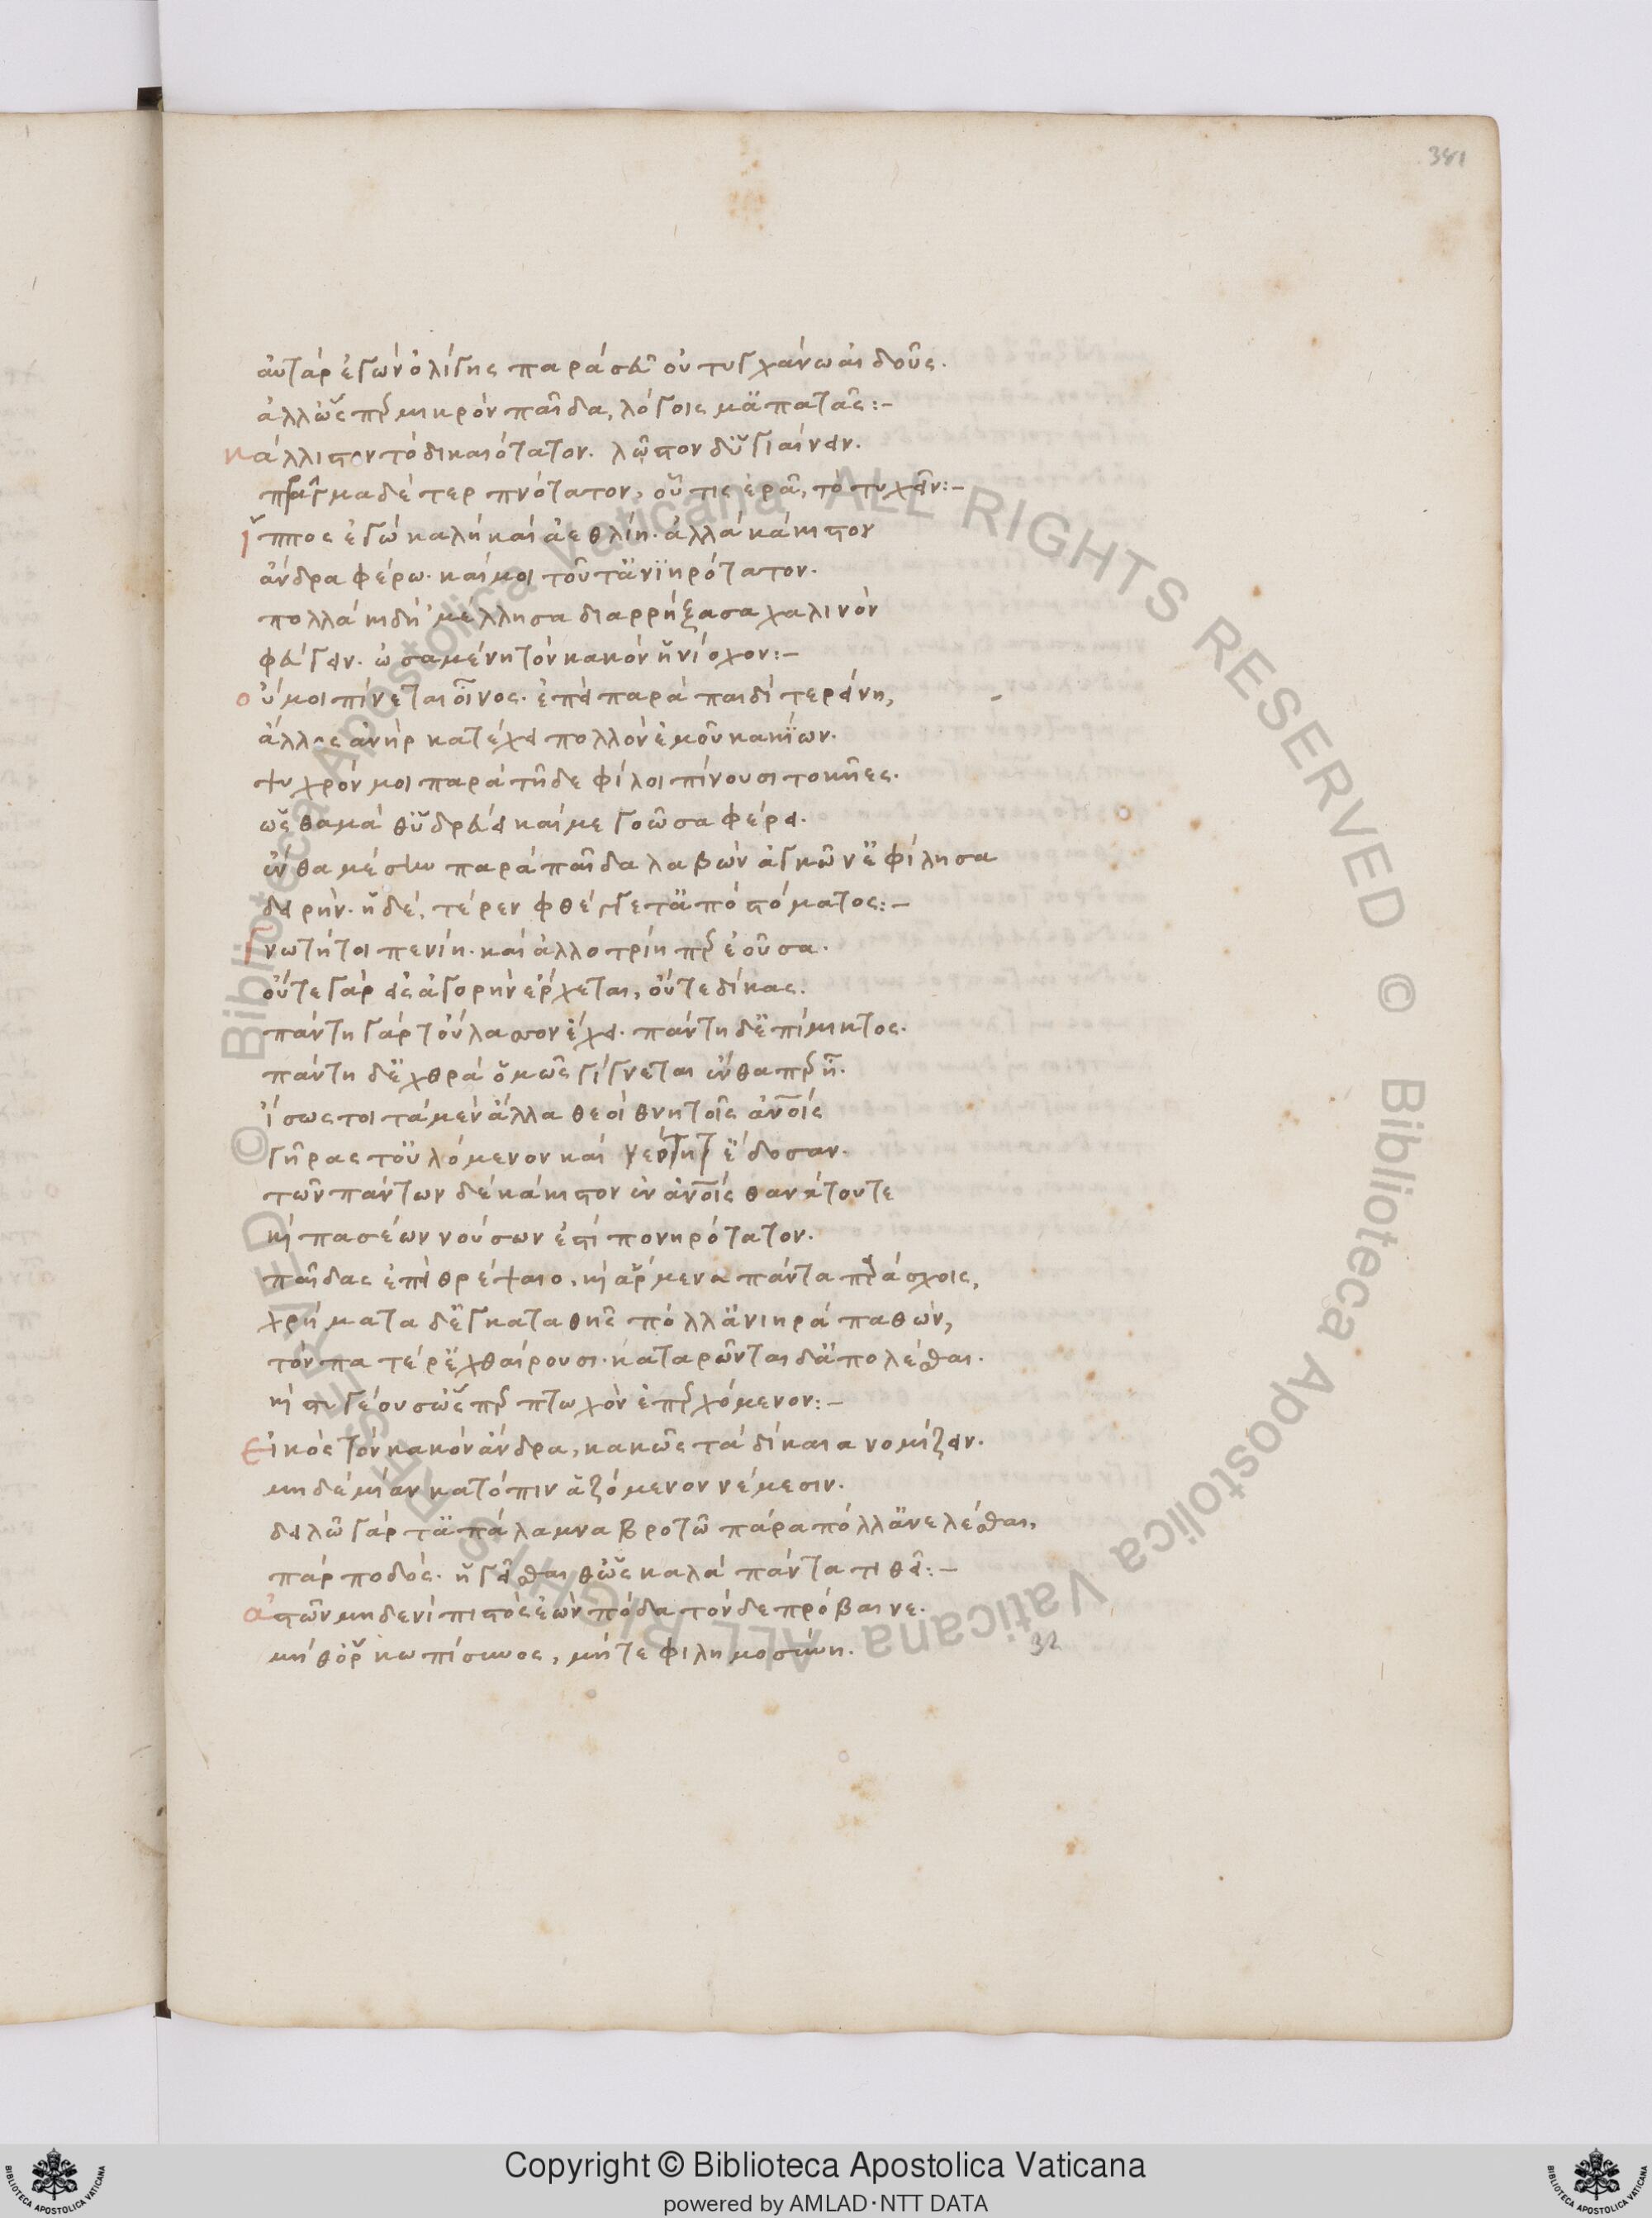 381
αὐτὰρ ἐγὼν ὀλίγης παρὰ σεῦ οὐ τυγχάνω αἰδοῦς.
ἀλλ' ὥσπερ μικρὸν παῖδα, λόγοις μ' ἀπατᾷς:-
κάλλιστον τὸ δικαιότατον. λῷστον δ' ὑγιαίνειν.
πρᾶγμα δὲ τερπνότατον, οὗ τις ἐρᾷ, τὸ τυχεῖν:-
ἵππος ἐγὼ καλὴ καὶ ἀεθλίη. ἀλλὰ κάκιστον
ἄνδρα φέρω. καί μοι τοῦτ' ἀνιηρότατον.
πολλάκι δὴ 'μέλλησα διαρρήξασα χαλινὸν
φεύγειν. ὠσαμένη τὸν κακὸν ἡνίοχον:-
οὔ μοι πίνεται οἶνος. ἐπεὶ παρὰ παιδὶ τερείνη,
ἄλλος ἀνὴρ κατέχει πολλὸν ἐμοῦ κακίων.
ψυχρόν μοι παρὰ τῇδε φίλοι πίνουσι τοκῆες.
ὥσθ' ἅμα θ' ὑδρεύει καί με γοῶσα φέρει.
ἔνθα μέσην παρὰ παῖδα λαβὼν ἀγκῶν' ἐφίλησα
δειρήν. ἡ δὲ, τέρεν φθέγγετ' ἀπὸ στόματος:-
γνωτή τοι πενίη. καὶ ἀλλοτρίη περ ἐοῦσα.
οὔτε γὰρ εἰς ἀγορὴν ἔρχεται, οὔτε δίκας.
πάντη γὰρ τοὔλασσον ἔχει. πάντη δ' ἐπίμικτος.
πάντη δ' ἐχθρὰ ὅμως γίγνεται ἔνθα περ ᾖ.
ἴσως τοι τὰ μὲν ἄλλα θεοὶ θνητοῖς ἀνοῖς
γῆρας τ' οὐλόμενον καὶ νεότητ' ἔδοσαν.
τῶν πάντων δὲ κάκιστον ἐν ἀνοῖς θανάτου τε
καὶ πασέων νούσων ἐστὶ πονηρότατον.
παῖδας ἐπεὶ θρέψαιο, καὶ ἄρμενα πάντα παράσχοις,
χρήματα δ' ἐγκαταθῇς πόλλ' ἀνιηρὰ παθών,
τὸν πατέρ' ἐχθαίρουσι. καταρῶνται δ' ἀπολέσθαι.
καὶ στυγέουσ' ὥσπερ πτωχὸν ἐπερχόμενον:-
εἰκὸς τὸν κακὸν ἄνδρα, κακῶς τὰ δίκαια νομίζειν.
μηδεμίαν κατόπιν ἁζόμενον νέμεσιν.
δειλῷ γάρ τ' ἀπάλαμνα βροτῷ πάρα πόλλ' ἀνελέσθαι,
πὰρ ποδός. ἡγεῖσθαί θ' ὡς καλὰ πάντα τιθεῖ:-
ἀστῶν μηδενὶ πιστὸς ἐὼν πόδα τόνδε πρόβαινε.
μήθ' ὅρκῳ πίσυνος, μήτε φιλημοσύνη.
32
Copyright © Biblioteca Apostolica Vaticana
powered by AMLAD·NTT DATA